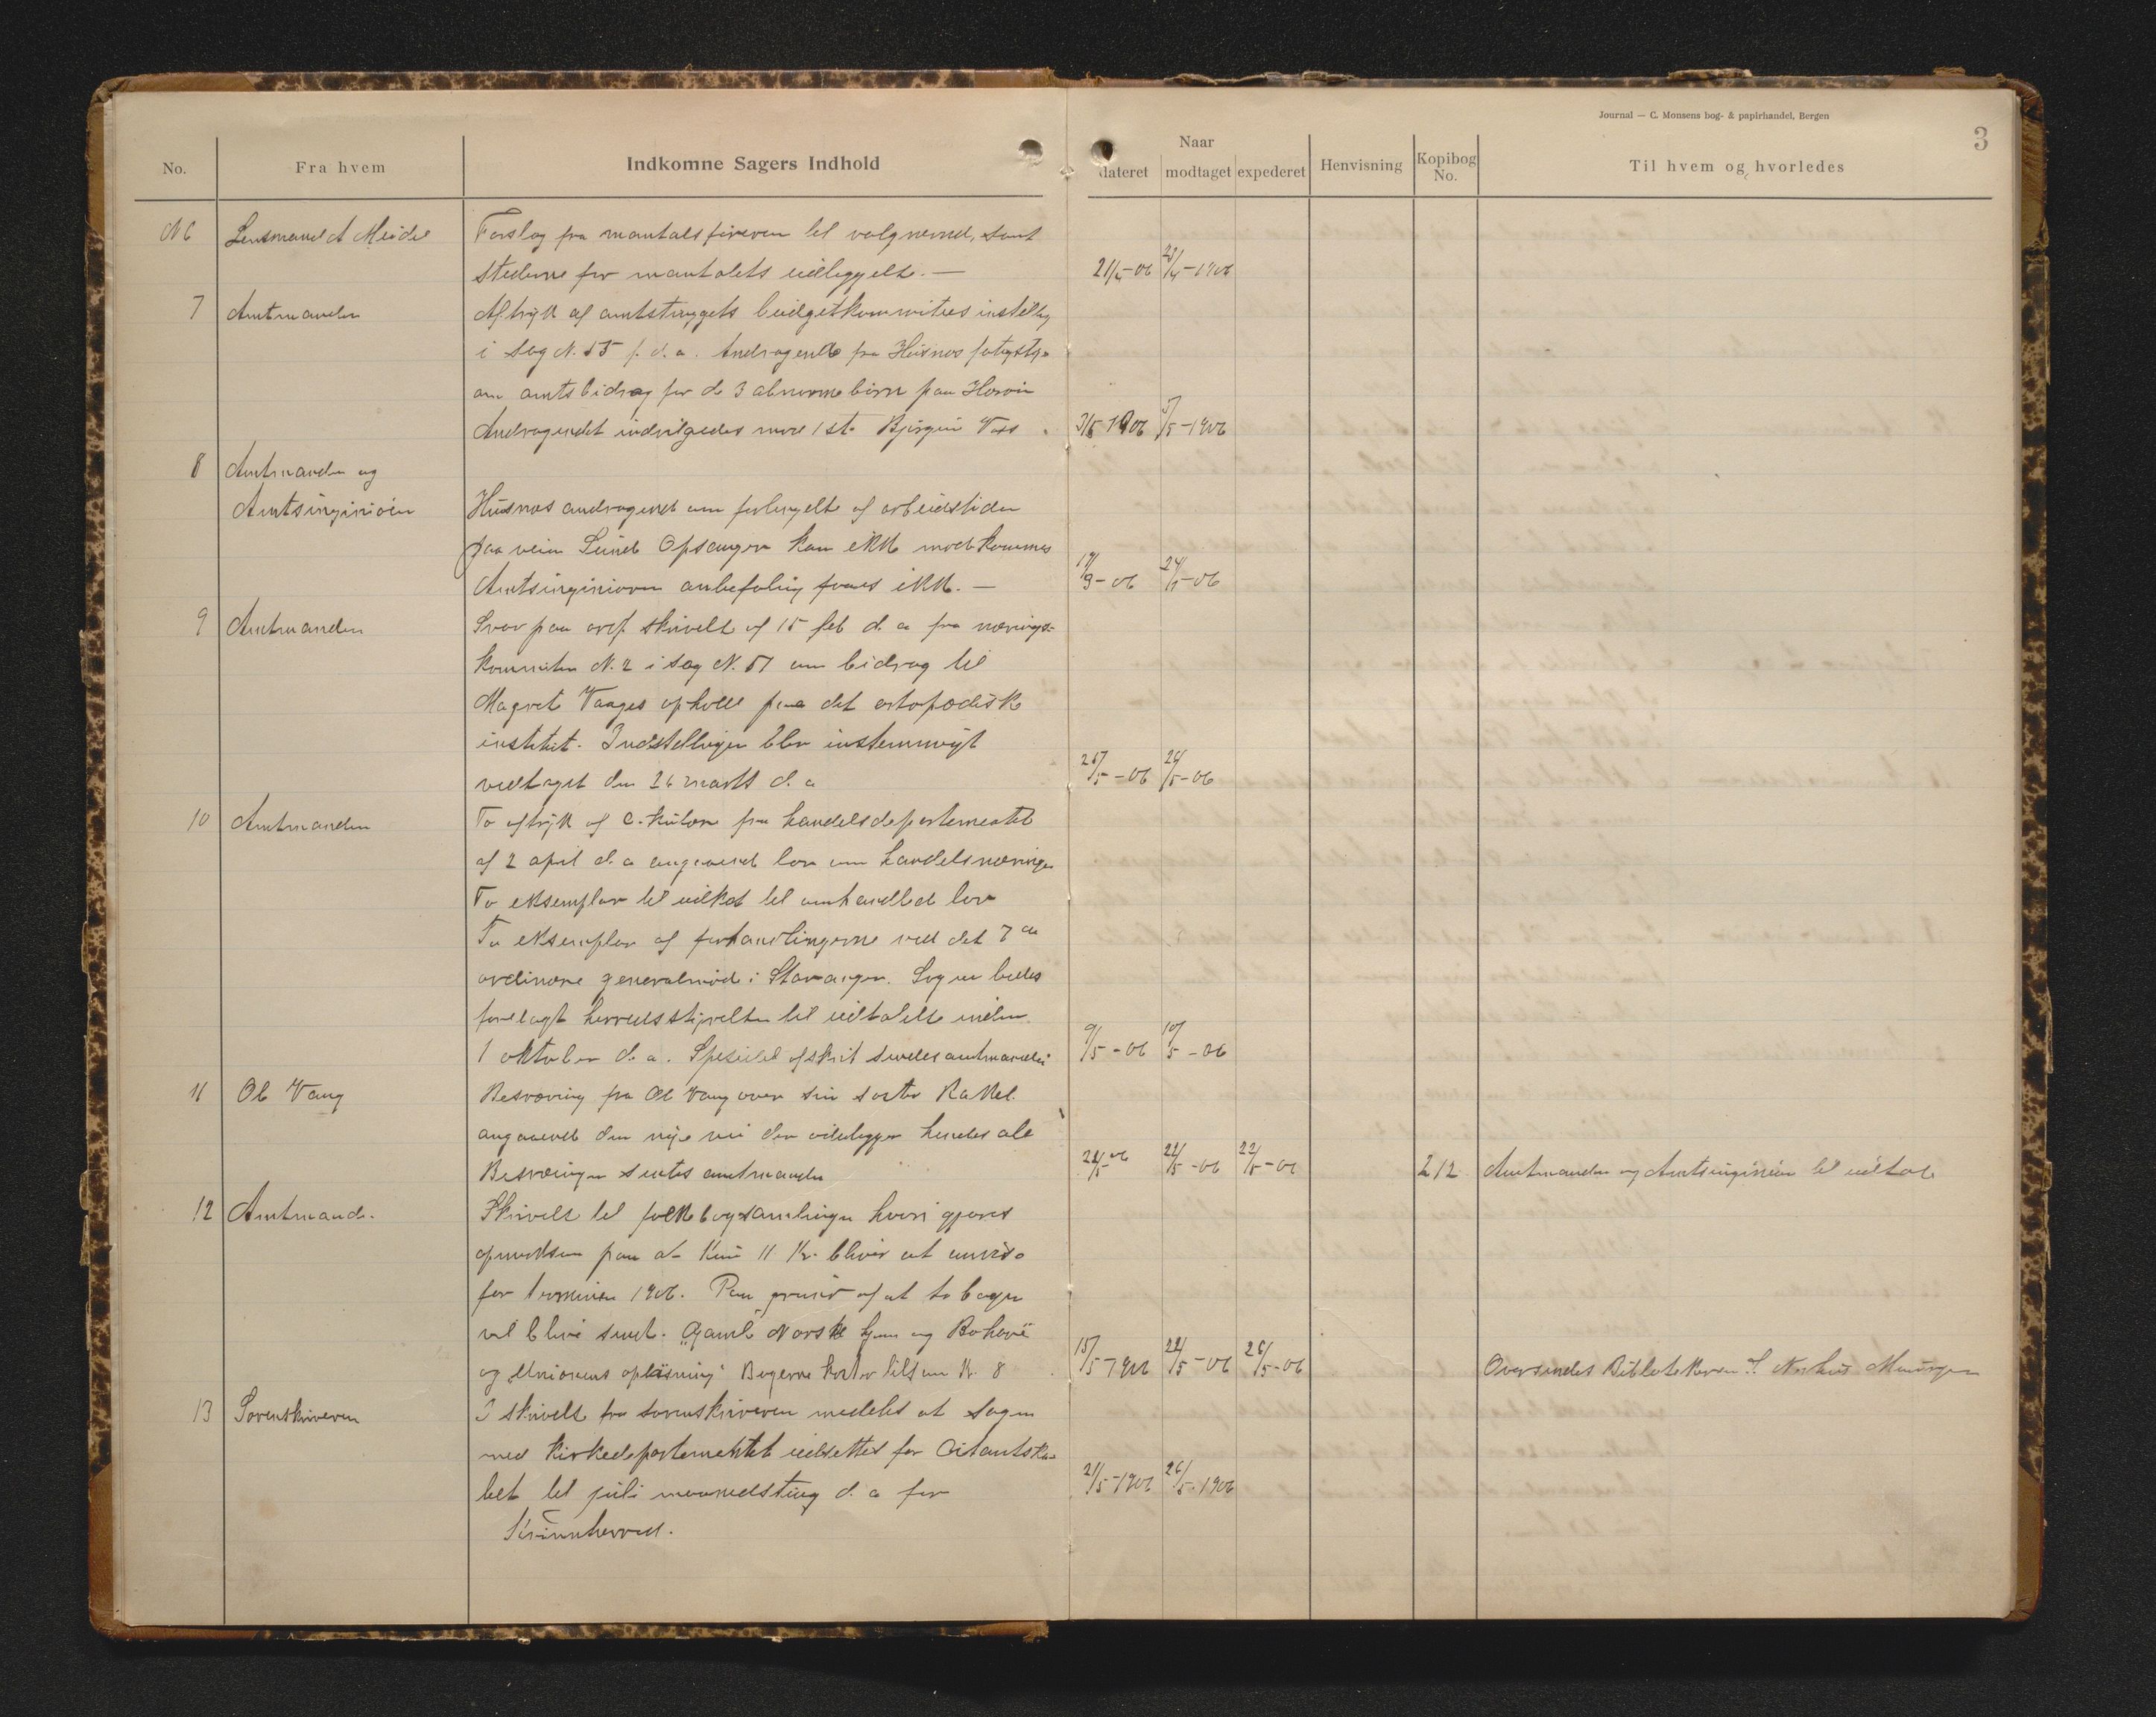 Journal — C. Monsens bog- & papirhandel, Bergen
3
No. Fra hvem Indkomne Sagers Indhold Naar dateret modtaget expederet Henvisning Kopibog No. Til hvem og hvorledes
N 6 Lensmand A Meidel Forslag fra mantalsføreren til valgnemd, samt
stederne for mantalets udleggelse. — 21/4-06 /4-1906
7 Amtmanden Aftryk af amtstinggets budgetkommitees
i sag N. 55 f. d. a. Andragende fra Husnes
om amtsbidrag for de 3 abnorme børn paa
Andragendet indvilgedes 3/5 1906 /5-1906
8 Amtmanden og
Amtsinginiøin Husnes andragend om forlengelse af arbeidstiden
paa veien Sund Opsanger kan ikke imødekommes
Amtsinginiøren anbefaling foraes ikke. — 24/5-06
9 Amtmanden Svar paa skrivelse af 15 feb d. a fra nærings-
komiteen N. 2 i sag N. 51 om bidrag til
Magret Vaages ophold paa det ortopædisk
institut. Indstellingen blev instemmigt
vedtaget den 26 marts d. a /5-06 26/5-06
10 Amtmanden To aftryk af fra handelsdepartementet
af 2 april d. a angaaend lov om handelsnæringer
To eksemplar til til omhandlet lov
To eksemplar af forhandlingerne ved det 7de
ordinære generalmøde i Stavanger. Sagen bedes
forelagt herredsstyrelsen til udtalelse inden
1 oktober d. a. afskrit sendes amtmanden 9/5-06 10/5-06
11 Ol Vaag Besværing fra Ol Vaag over sin søster Rakkel
angaaende den nye vei der ødelegger hendes
Besværingen sentes amtmanden 22/5-06 22/5-06 212 Amtmanden og Amtsinginiør til udtal
12 Amtmand. Skrivelse til folkebogsamlingen hvori gjøres
opmerksom paa at kun 11 Kr. bliver at
for terminen 1906. Paa grund af at to bøger
vil blive sendt. "Gamle Norske hjem og
og Unionens opløsning" Bøgerne koster tilsam Kr. 8 15/5-1906 /5-06 26/5-06 Oversendes Bibliotekeren
13 Sorenskriveren I skrivelse fra sorenskriveren meddeles at sagen
med Kirkedepartementet udsettes for Citantska-
bet til juli maanedsting d. a for 21/5-1906 26/5-1906
Kvinnherred.